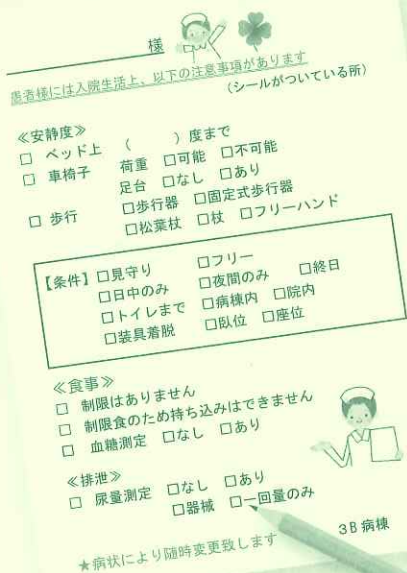 様
患者様には入院生活上、以下の注意事項があります
（シールがついている所）
≪安静度≫
□ ベッド上 （　　）度まで
□ 車椅子 荷重 □可能 □不可能
足台 □なし □あり
□ 歩行 □歩行器 □固定式歩行器
□松葉杖 □杖 □フリーハンド
【条件】□見守り □フリー
□日中のみ □夜間のみ □終日
□トイレまで □病棟内 □院内
□装具着脱 □臥位 □座位
≪食事≫
□ 制限はありません
□ 制限食のため持ち込みはできません
□ 血糖測定 □なし □あり
≪排泄≫
□ 尿量測定 □なし □あり
□器械 □一回量のみ
★病状により随時変更致します
3B 病棟